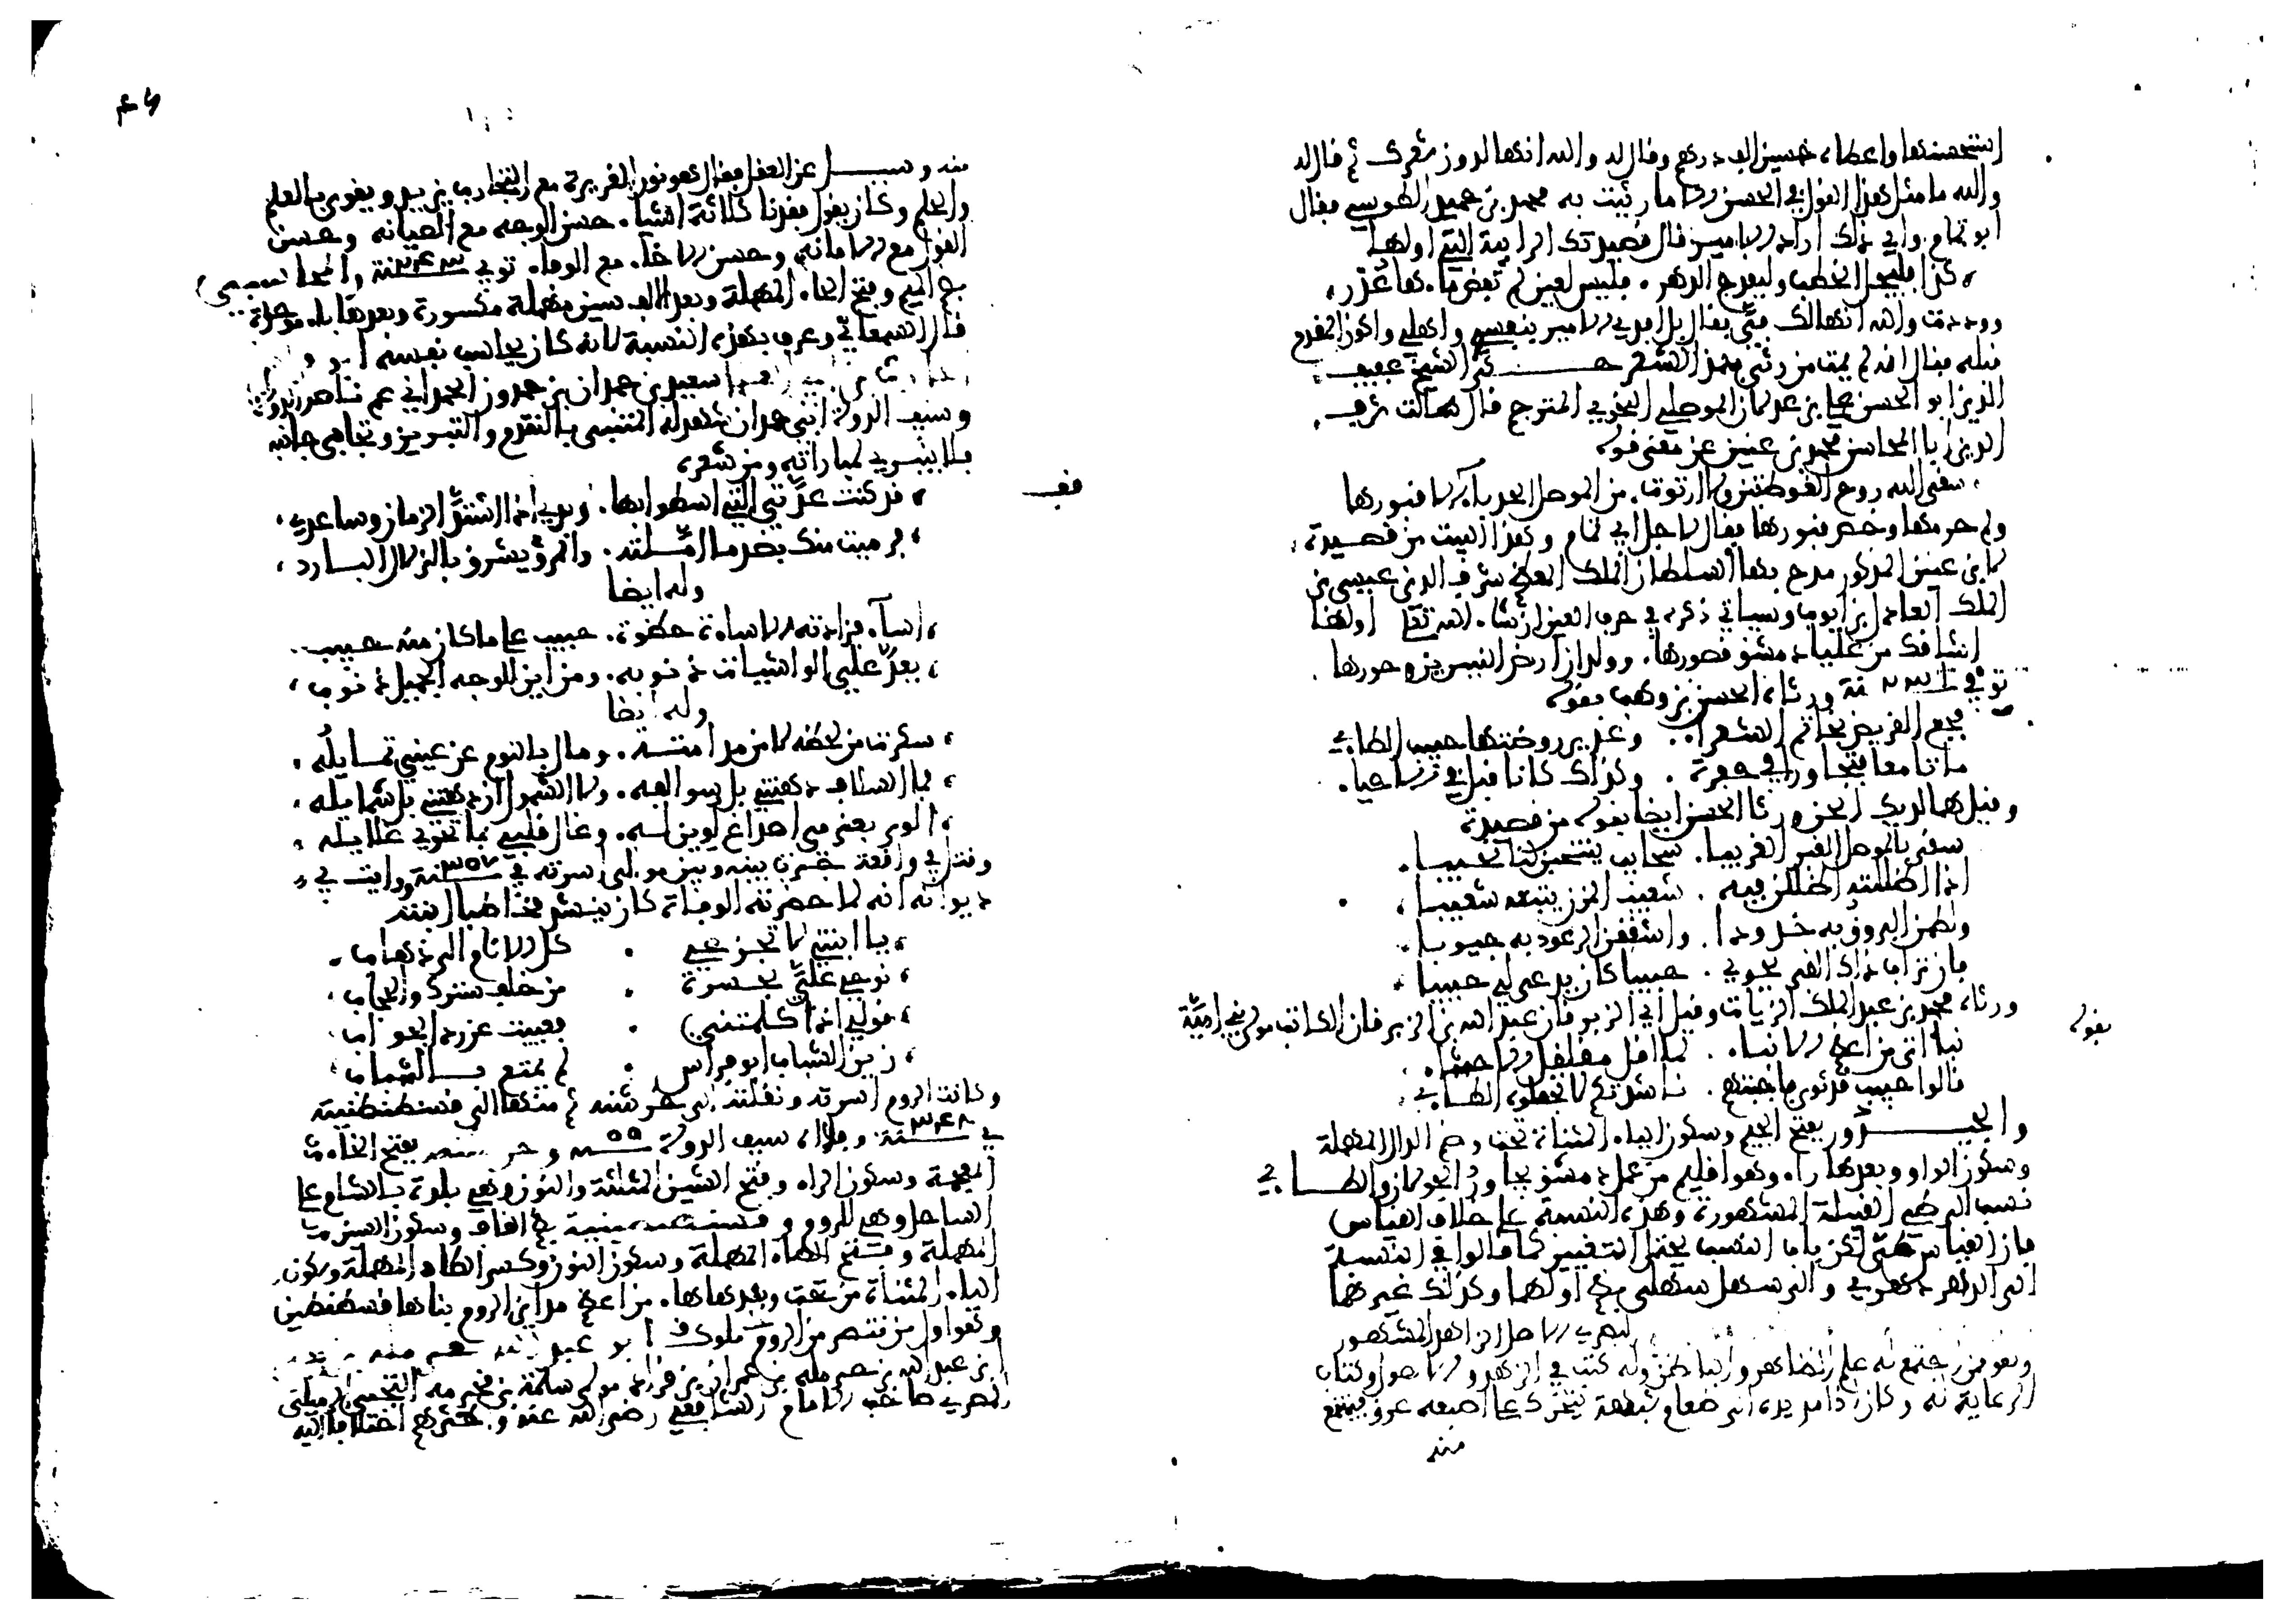 استحسنها واعطاه خمسين الف درهم وقال له والله انها لدون شعرك ثم قال له
والله ما مثل هذا القول في الحسن الا ما رثيت به محمد بن حميد الطوسي فقال
ابو تمام واي ذلك اراد الامير قال قصيدتك الرائية التي اولها
كذا فليجل الخطب وليفدح الدهر . فليس لعين لم يفض ماءها عذر
وددت والله انها لك في فقال بل افدي الامير بنفسي واهلي واكون المقدم
قبله فقال انه لم يمت من رثي بهذا الشعر حكى الشيخ عفيف
الدين ابو الحسن علي بن عدلان الموصلي النحوي المترجم قال سالت شرف
الدين ابا المحاسن محمد بن عنين عن معنى قوله
سقى الله روح الغوطتين ولا ارتوت . من الموصل الحدباء الا قبورها
ولم حرمها وخص قبورها فقال لاجل ابي تمام وهذا البيت من قصيدة
لابن عنين المذكور مدح بها السلطان الملك المعظم شرف الدين عيسى بن
الملك العادل ابن ايوب وسياتي ذكره في حرف العين ان شاء الله تعالى اولها
اشاقك من عليا دمشق قصورها . وولدان ارض النيربين وحورها
توفي ٢٣١ـنة ورثاه الحسن بن وهب بقوله
فجع القريض بخاتم الشعراء . وغدير روضتها حبيب الطاءي
ماتا معا فتجاورا في حفرة . وكذاك كانا قبل في الاحياء
وقيل هما لديك الجن ورثا الحسن ايضا بقوله من قصيدة
سقى بالموصل القبر الغريبا . سحايب ينتحبن لنا نحيبا
اذا اظللنه اظللن فيه . شعيب المزن يتبعه شعيبا
ولطمن البروق به خدودا . واشققن الرعود به جيوبا
فان تراب ذاك القبر يحوي . حبيبا كان يدعى لي حبيبا
ورثاه محمد بن عبد الملك الزيات وقيل ابي الزبرقان عبد الله بن الزبرقان الكاتب مولى بني امية
بقوله
نبا اتى من اعظم الانباء . لما الم مقلقل الاحشاء
قالوا حبيب قد ثوى فاجبتهم . ناشدتكم لا تجعلوه الطاءي
والجيدور بفتح الجيم وسكون الياء المثناة تحت وضم الدال المهملة
وسكون الواو وبعدها راء وهو اقليم من عمل دمشق يجاور الجولان والطاءي
نسب الى طي القبيلة المشهورة وهذه النسبة على خلاف القياس
فان القياس طيئي لكن باب النسب يحتمل التغيير كما قالوا في النسبة
الى الدهر دهري والى سهل سهلي بضم اولهما وكذلك غيرهما
البصري الاصل الزاهد المشهور
وهو ممن اجتمع له علم الظاهر والباطن وله كتب في الزهد والاصول وكتاب
الرعاية له وكان اذا مد يده الى طعام شبهة تحرك على اصبعه عرق فيمتنع
منه
منه وسيل عن العقل فقال هو نور الغريزة مع التجارب يزيد ويقوى بالعلم
والحلم وكان يقول فقدنا ثلاثة اشياء حسن الوجه مع الصيانة وحسن
القول مع الامانة وحسن الاخاء مع الوفاء توفي ٢٤٣ـنة والمحاسبي
بضم الميم وفتح الحاء المهملة وبعد الالف سين مهملة مكسورة وبعدها باء موحدة
قال السمعاني وعرف بهذه النسبة لانه كان يحاسب نفسه
سعيد بن حمدان بن حمدون الحمداني عم ناصر الدولة
وسيف الدولة ابني حمدان شهد له المتنبي بالتقدم والتبريز وتحامى جانبه
فلا ينبري لمباراته ومن شعره
قد كنت عدتي التي اسطو بها . ويدي اذا اشتد الزمان وساعدي
فرميت منك بضد ما املته . والمرء يشرق بالزلال البارد
وله ايضا
اساء فزادته الاساءة حظوة . حبيب على ما كان منه حبيب
يعد علي الواشيات ذنوبه . ومن اين للوجه الجميل ذنوب
وله ايضا
سكرت من لحظه لا من مدامته . ومال بالنوم عن عيني تمايله
فما السلاف دهتني بل سوالفه . ولا الشمول ازدهتني بل شمايله
الوى بعزمي اصداغ لوين له . وغال قلبي بما تحوي غلايله
وقتل في واقعة جرت بينه وبين موالي اسرته في ٣٥٧ـنة ورايت في
ديوانه انه لما حضرته الوفاة كان ينشد مخاطبا ابنته
يا ابنتي لا تجزعي . كل الانام الى ذهاب
نوحي علي بحسرة . من خلف سترك والحجاب
قولي اذا كلمتني . فعييت عن رد الجواب
زين الشباب ابو فراس . لم يمتع بالشباب
وكانت الروم اسرته ونقلته الى خرشنه ثم منها الى قسطنطينية
في ٣٤٨ـنة وفداه سيف الدولة ٥٥ـنة وخرشنه بفتح الخاء
المعجمة وسكون الراء وفتح الشين المثلثة والنون وهي بلدة بالشام على
الساحل وهي للروم وقسطنطينية بضم القاف وسكون السين
المهملة وفتح الطاء المهملة وسكون النون وكسر الطاء المهملة وسكون
الياء المثناة من تحت وبعدها هاء من اعظم مداين الروم بناها قسطنطين
وهو اول من تنصر من الروم ملوك ابو عبد الله
ابن عبد الله بن حرملة بن عمران بن قراد مولى سلمة بن مخرمة التجيبي الزميلي
المصري صاحب الامام الشافعي رضي الله عنه واكثرهم اختلافا اليه